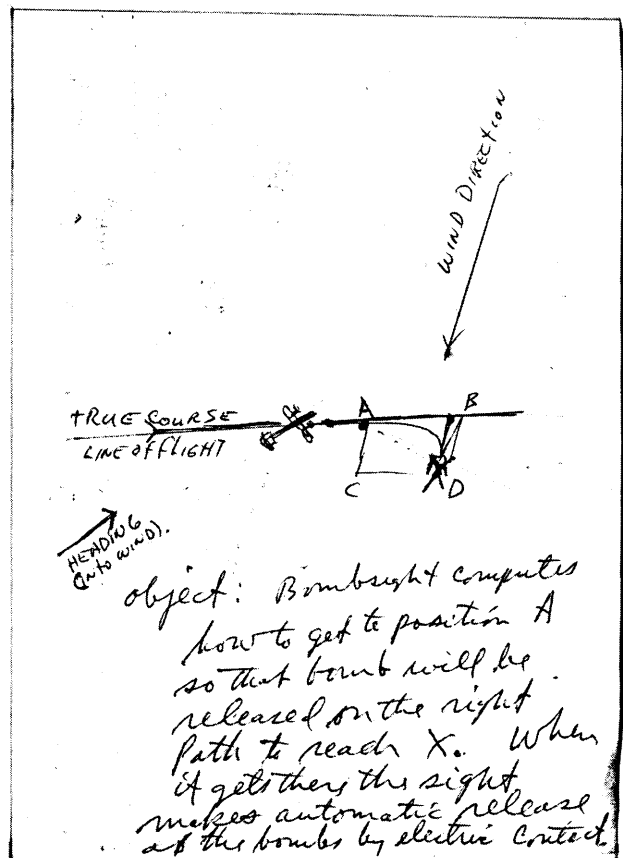 WIND DIRECTION
TRUE COURSE
LINE OF FLIGHT
A
B
C
X D
HEADING
(INTO WIND).
object: Bombsight computes
how to get to position A
so that bomb will be
released on the right
Path to reach X. When
it gets there the sight
makes automatic release
of the bombs by electric contact.